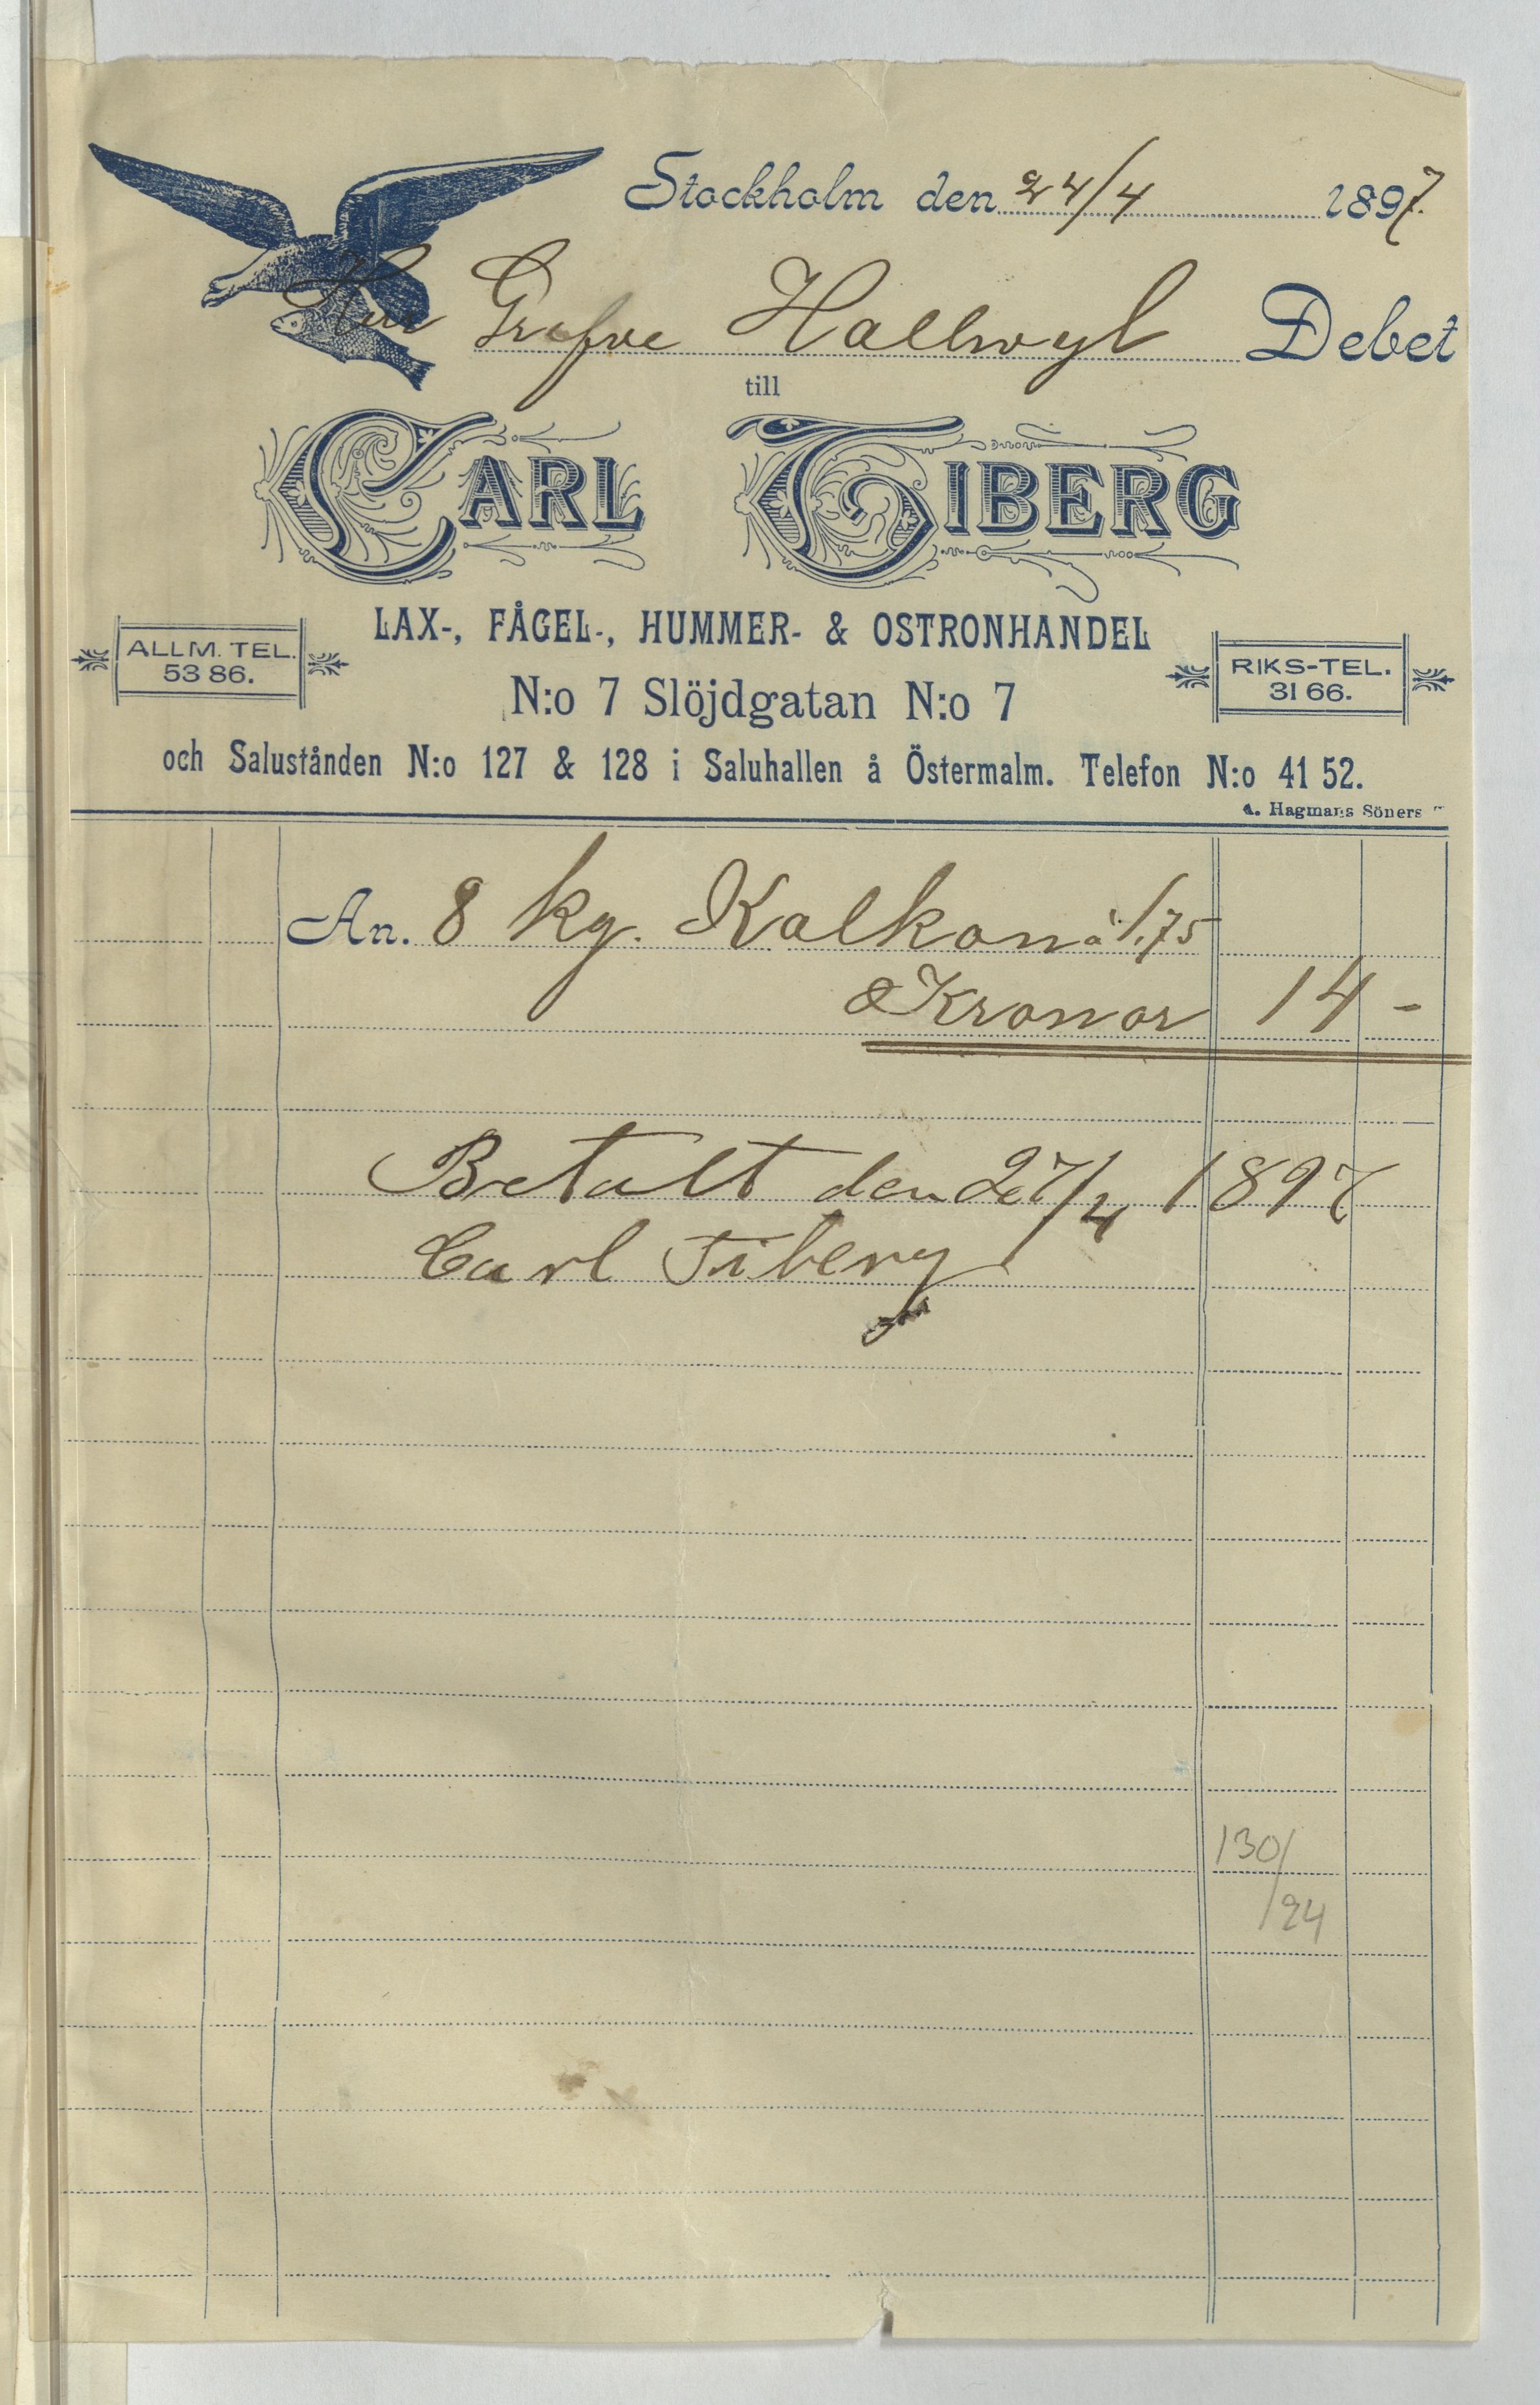 Stockholm den 24/4 1897.
Herr Grefve Hallwyl Debet
till
CARL TIBERG
LAX-, FÅGEL-, HUMMER- & OSTRONHANDEL
ALLM. TEL. 53 86.
RIKS-TEL. 31 66.
N:o 7 Slöjdgatan N:o 7
och Salustånden N:o 127 & 128 i Saluhallen å Östermalm. Telefon N:o 41 52.
A. Hagmans Söners
An. 8 kg. Kalkon à 1,75
Kronor 14 -
Betalt den 27/4 1897
Carl Tiberg
130/
/24